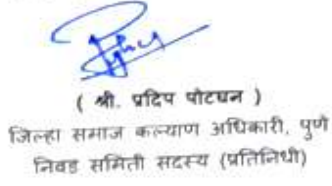 ( श्री. प्रदिप पोटघन )
जिल्हा समाज कल्याण अधिकारी, पुणे
निवड समिती सदस्य (प्रतिनिधी)